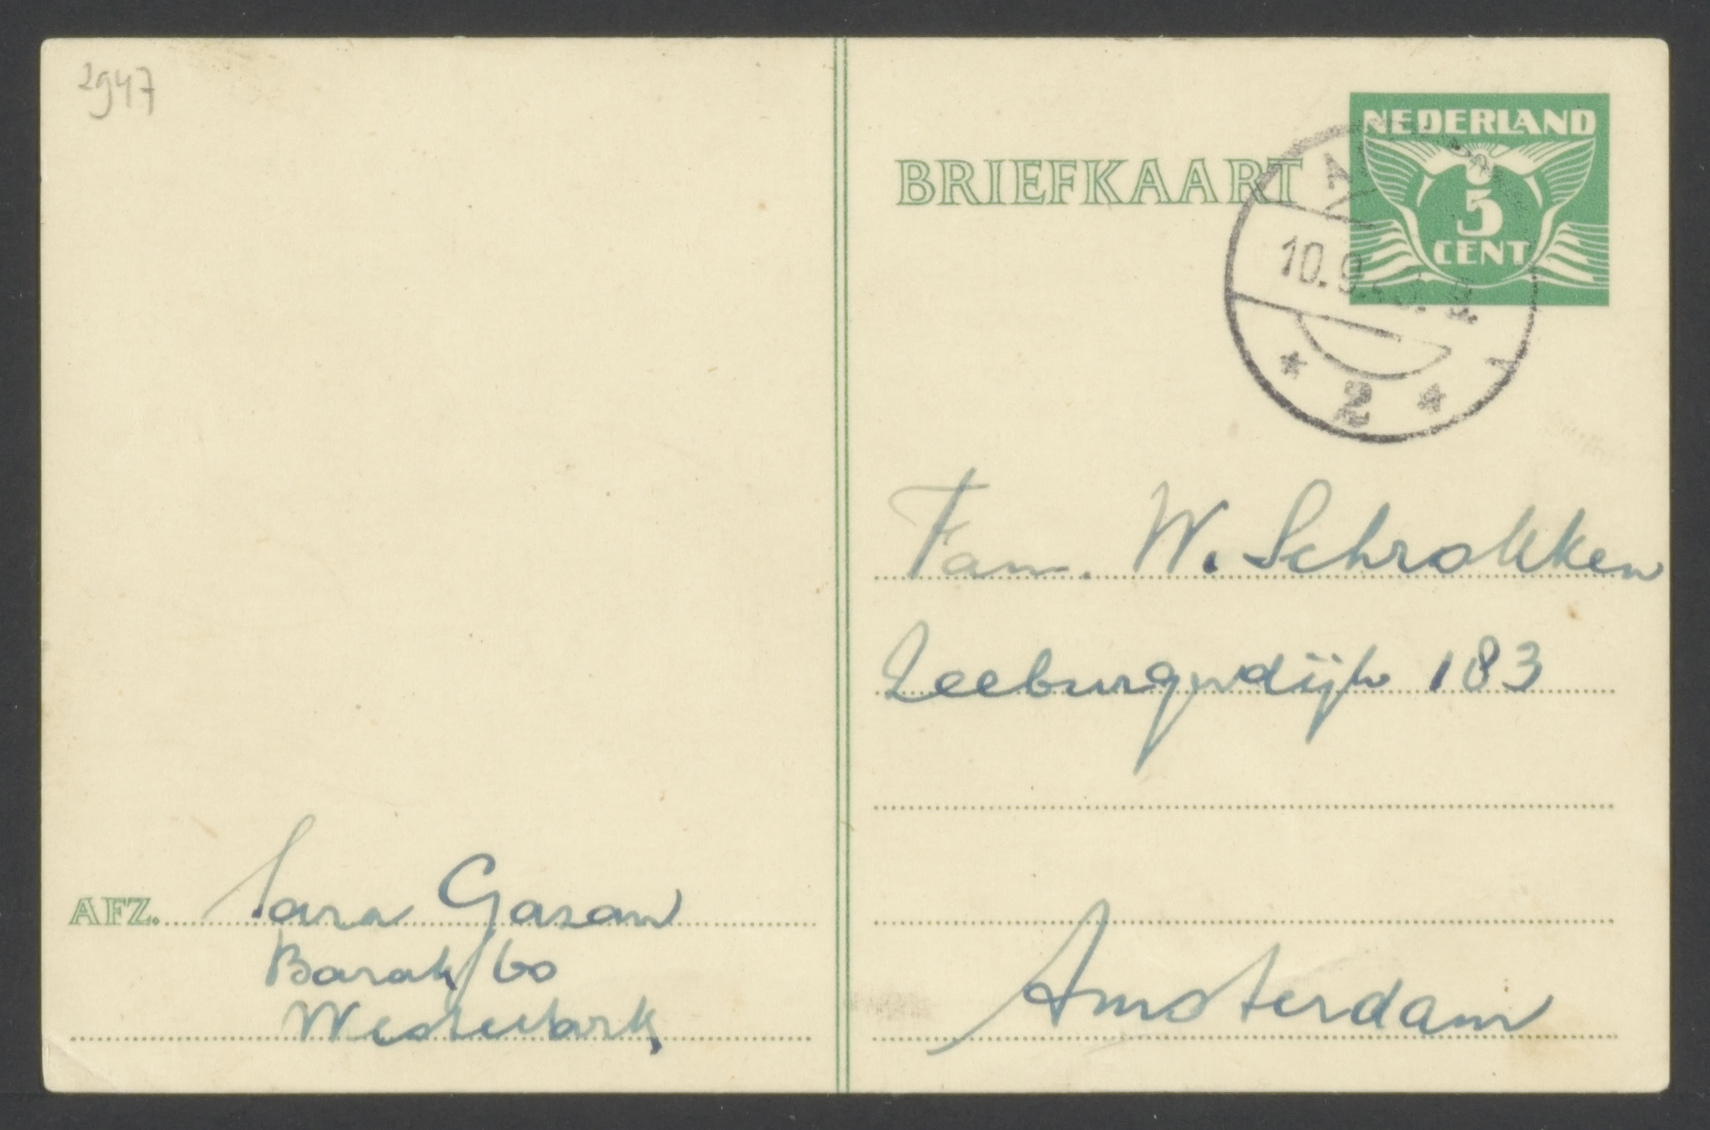 2947
BRIEFKAART
NEDERLAND
5
CENT
10.9.
2
Fam. W. Schrokken
Zeeburgerdijk 183
Amsterdam
AFZ. Sara Gasan
Barak 60
Westerbork